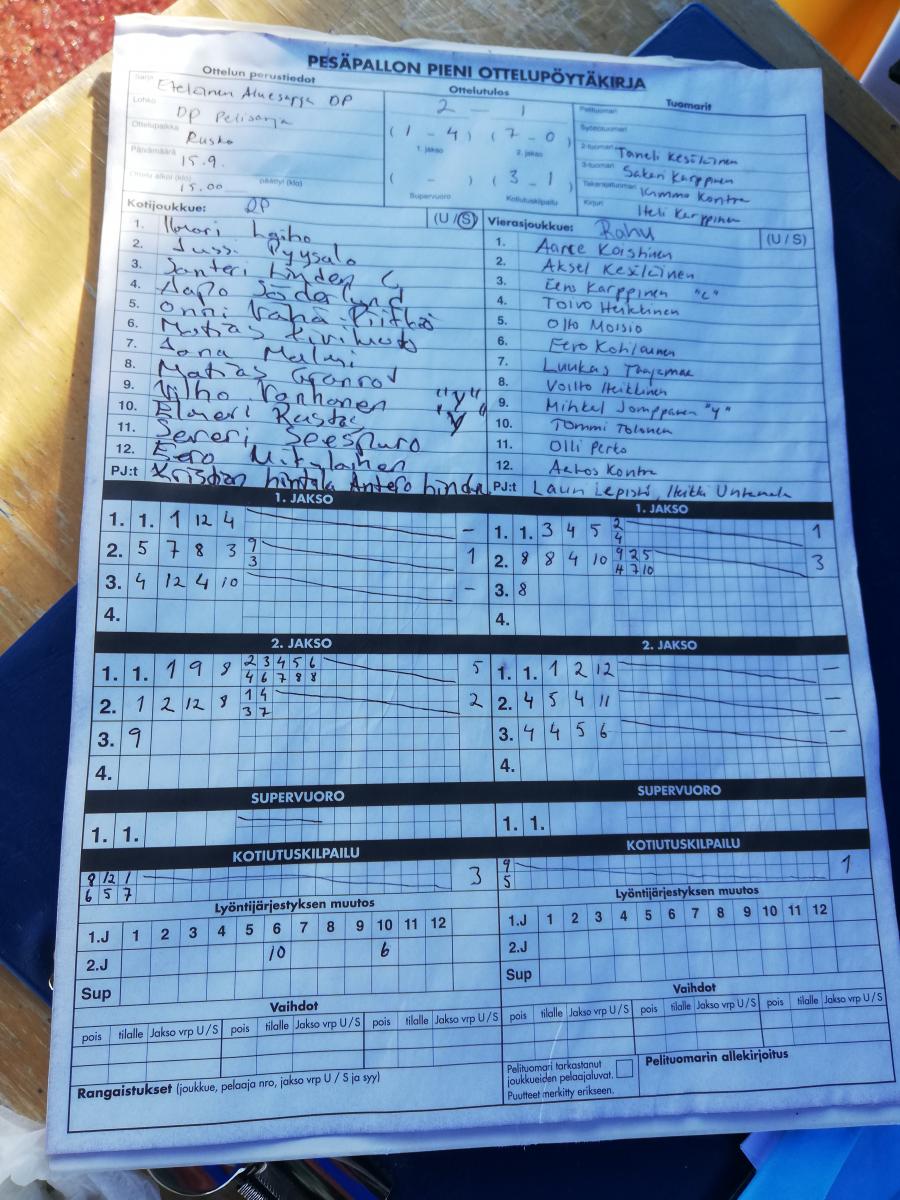 PESÄPALLON PIENI OTTELUPÖYTÄKIRJA
Ottelun perustiedot
Ottelutulos
Tuomarit
Sarja Eteläinen Aluesarja DP
Lohko DP Pelisarja
Ottelupaikka Rusko
Päivämäärä 15.9.
Ottelu alkoi (klo) 15.00 päättyi (klo)
2 - 1
(1 - 4) (7 - 0)
1. jakso 2. jakso
( - ) (3 - 1)
Supervuoro Kotiutuskilpailu
Pelituomari
Syöttötuomari
2-tuomari Taneli Kesäläinen
3-tuomari Sakari Karppinen
Takarajatuomari Kimmo Kontra
Kirjuri Karppinen
Kotijoukkue: DP (U/S)
1. Ilmari Laiho
2. Jussi Pyysalo
3. Santeri Linden C
4. Aapo Söderlund
5. Onni
6. Matias Kivihuhta
7. Malmi
8. Matias Granrot
9. Vilho Vanhanen "Y"
10. Elmeri V
11. Severi Seespuro
12. Eero
PJ:t Kristian Hintala Antero
Vierasjoukkue: Rahu (U/S)
1. Aaree Koistinen
2. Aksel Kesäläinen
3. Eero Karppinen "C"
4. Toivo Heikkinen
5. Otto Moisio
6. Eero
7. Luukas
8. Voitto Heikkinen
9. Mihkel Jomppanen "Y"
10. Tommi Tolonen
11. Olli Perko
12. Aatos Kontra
PJ:t Lauri Lepistö, Heikki
1. JAKSO
1. 1. 1 12 4 –
2. 5 7 8 3 9 3 1
3. 4 12 4 10 –
4.
1. JAKSO
1. 1. 3 4 5 2 4 1
2. 8 8 4 10 9 2 5 4 7 10 3
3. 8
4.
2. JAKSO
1. 1. 1 9 8 2 3 4 5 6 4 6 7 8 8 5
2. 1 2 12 8 1 4 3 7 2
3. 9
4.
2. JAKSO
1. 1. 1 2 12 –
2. 4 5 4 11 –
3. 4 4 5 6 –
4.
SUPERVUORO
1. 1.
SUPERVUORO
1. 1.
KOTIUTUSKILPAILU
8 12 1 3
6 5 7
KOTIUTUSKILPAILU
9 1
5
Lyöntijärjestyksen muutos
1.J 1 2 3 4 5 6 7 8 9 10 11 12
2.J 10 6
Sup
Lyöntijärjestyksen muutos
1.J 1 2 3 4 5 6 7 8 9 10 11 12
2.J
Sup
Vaihdot
pois tilalle Jakso vrp U/S pois tilalle Jakso vrp U/S pois tilalle Jakso vrp U/S
Vaihdot
pois tilalle Jakso vrp U/S pois tilalle Jakso vrp U/S pois tilalle Jakso vrp U/S
Rangaistukset (joukkue, pelaaja nro, jakso vrp U / S ja syy)
Pelituomari tarkastanut
joukkueiden pelaajaluvat.
Puutteet merkitty erikseen.
Pelituomarin allekirjoitus